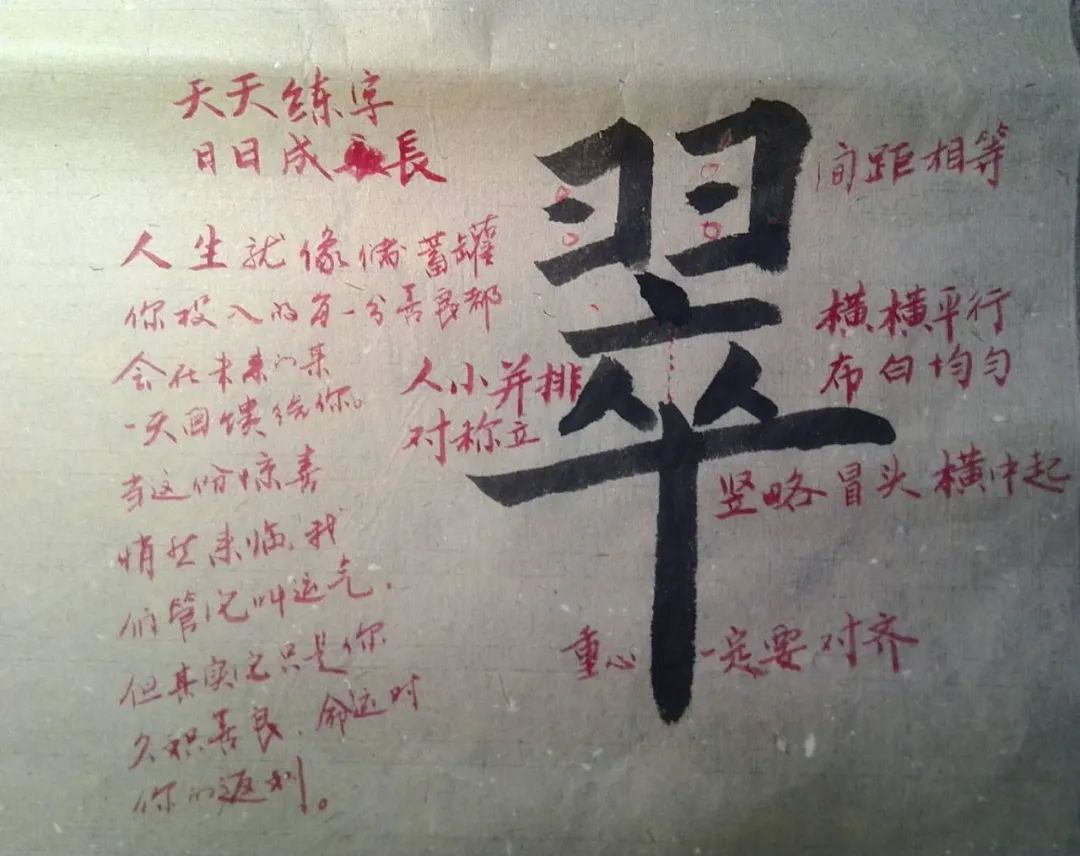 天天练字
日日成長
人生就像储蓄罐
你投入的每一分善良都
会在未来的某
一天回馈给你。
当这份惊喜
悄然来临,我
们管它叫运气,
但其实它只是你
久积善良、命运对
你的返利。
翠
间距相等
横横平行
布白均匀
人小并排
对称立
竖略冒头横中起
重心一定要对齐